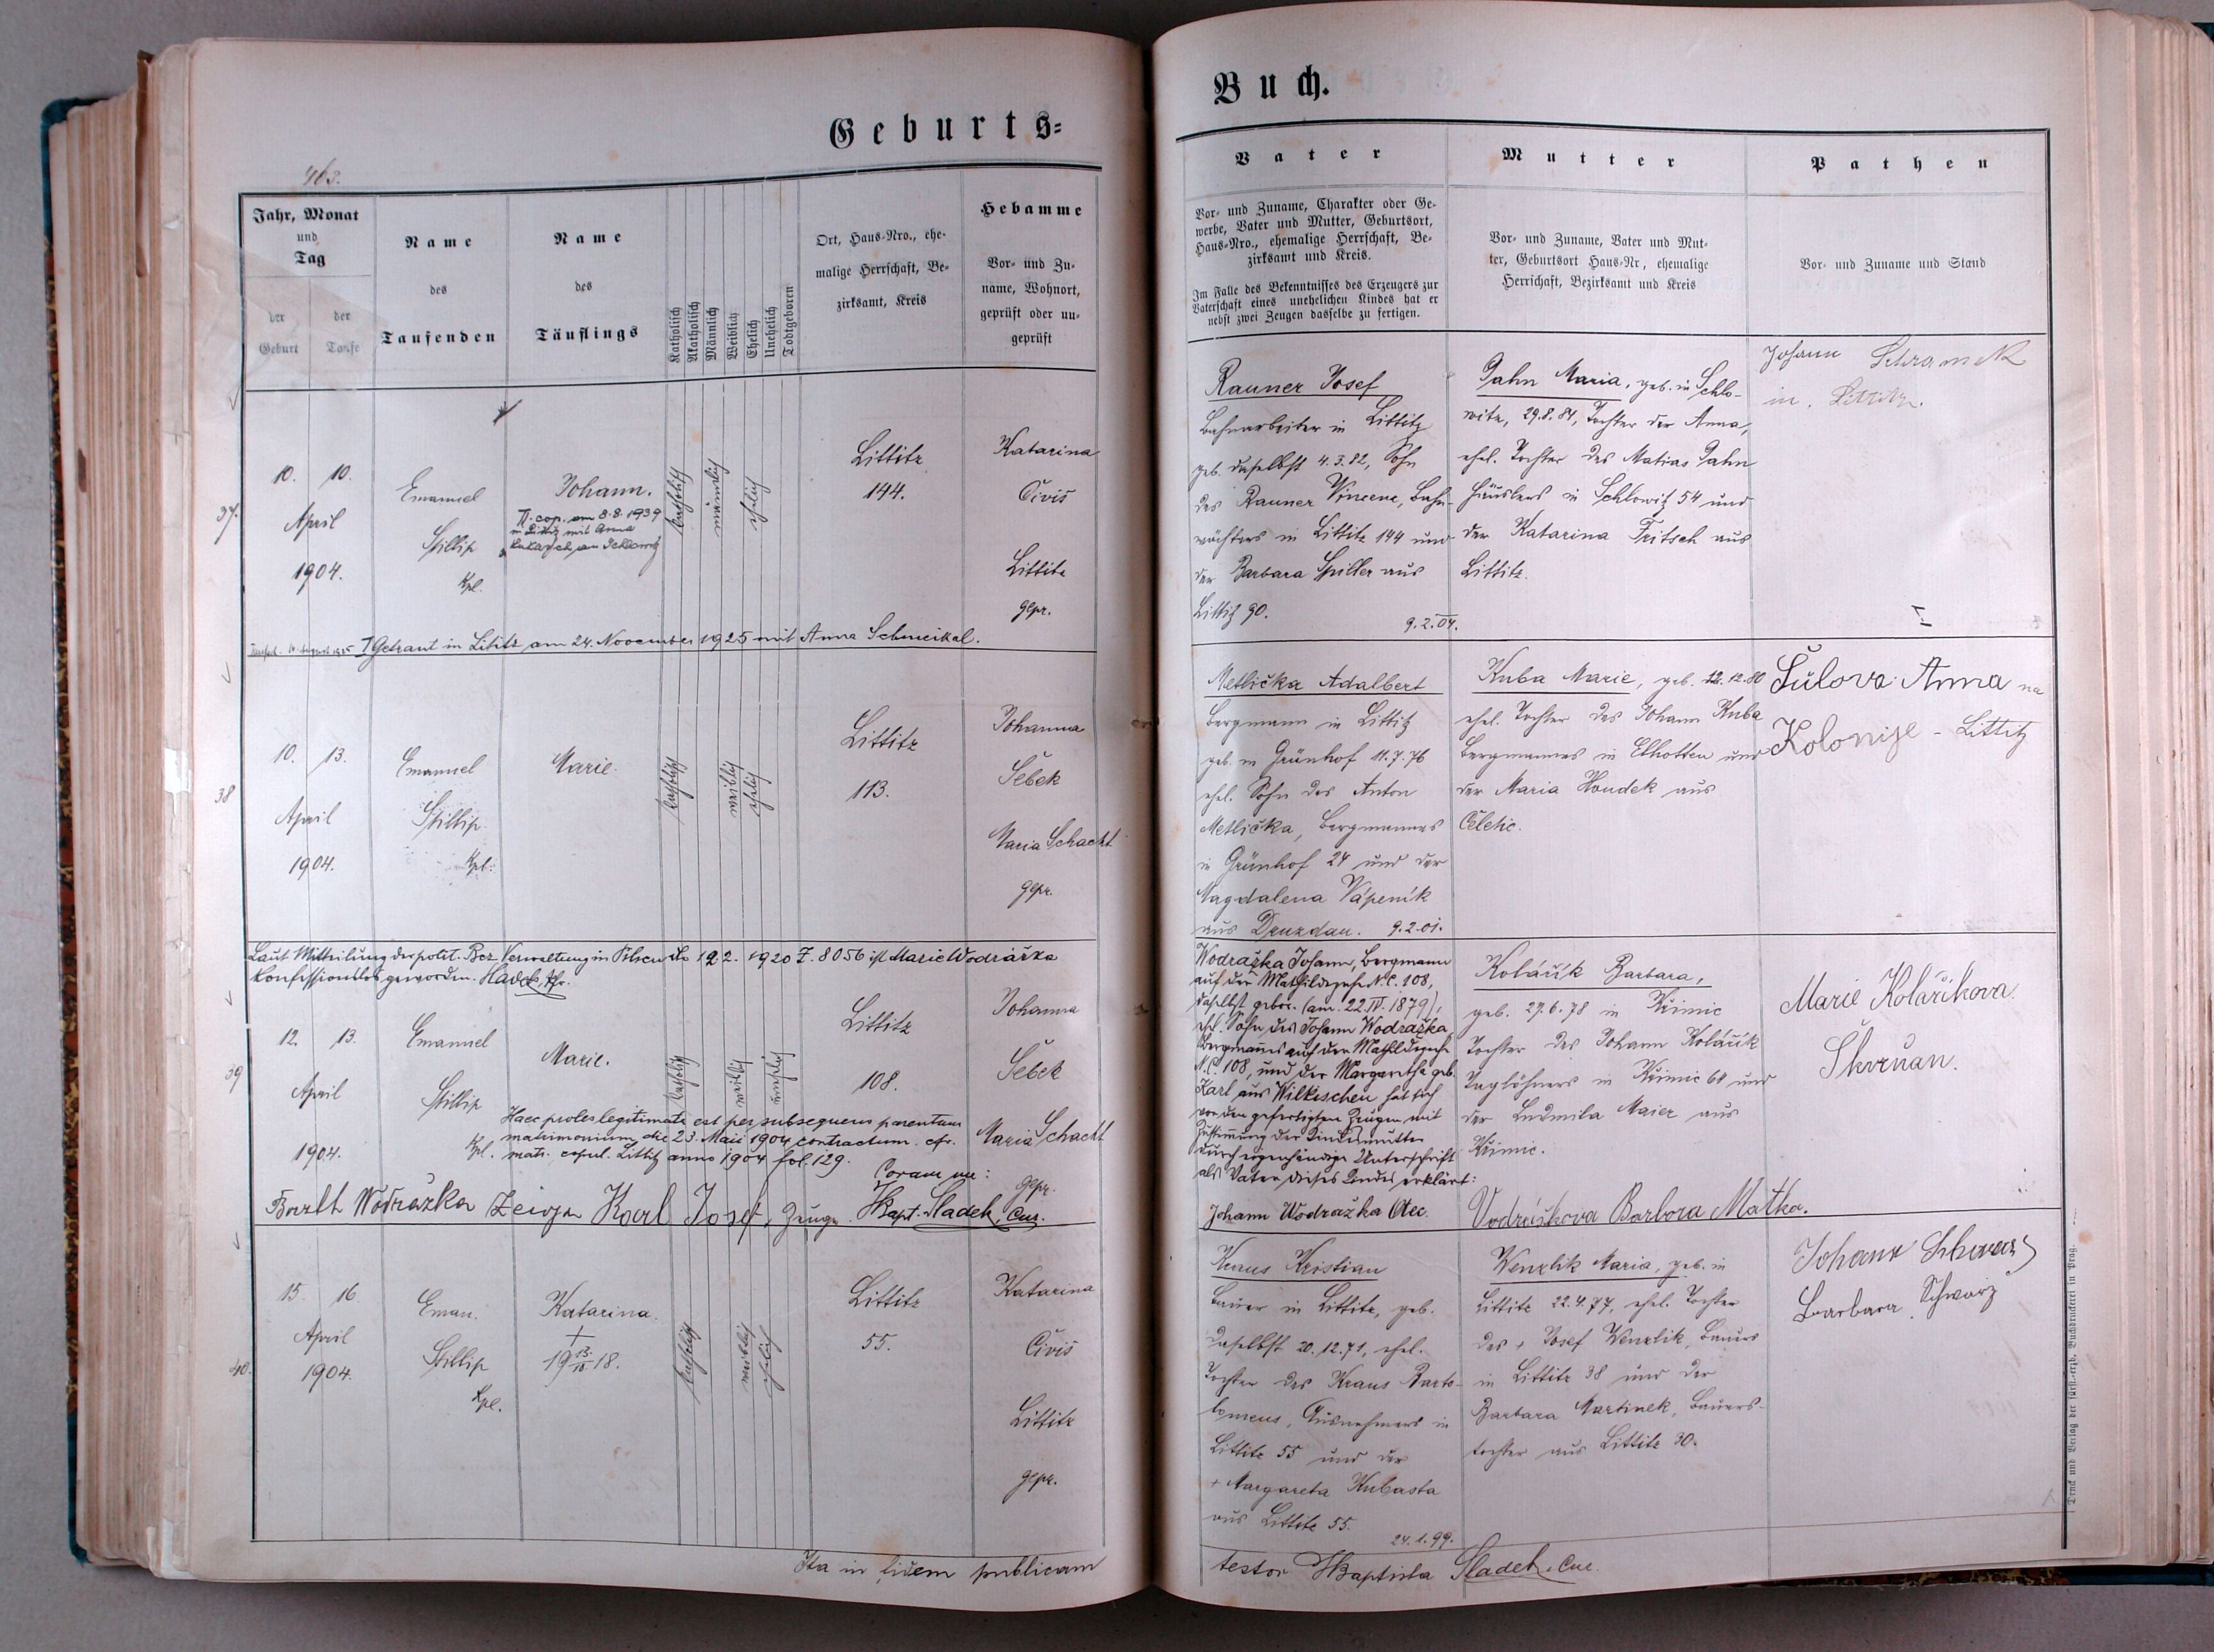 Geburts=
463.
Jahr, Monat
und
Tag
der
Geburt
der
Taufe
Name
des
Taufenden
Name
des
Täuflings
Katholisch
Akatholisch
Männlich
Weiblich
Ehelich
Unehelich
Todtgeboren
Ort, Haus-Nro., ehe-
malige Herrschaft, Be-
zirksamt, Kreis
Hebamme
Vor- und Zu-
name, Wohnort,
geprüft oder un-
geprüft
37.
10. 10.
April
1904.
Emanuel
Stillip
Kpl.
Johann.
II. cop. am 8.8.1939
in Littitz mit Anna
katholisch
männlich
ehelich
Littitz
144.
Katarina
Čivis
Littitz
gepr.
I Getraut in Lititz am 24. November 1925 mit Anna Schmeikal.
38
10. 13.
April
1904.
Emanuel
Stillip
Kpl.
Marie.
katholisch
weiblich
ehelich
Littitz
113.
Johanna
Šebek
Maria Schacht
gepr.
Laut Mitteilung der polit. Bez. Verwaltung in Pilsen dto 12.2.1920 Z. 8056 ist Marie Wodrážka
konfessionslos geworden.
39
12. 13.
April
1904.
Emanuel
Stillip
Kpl.
Marie.
katholisch
weiblich
unehelich
Littitz
108.
Johanna
Šebek
Maria Schacht
gepr.
Haec proles legitimata est per subsequens parentum
matrimonium die 23. Maii 1904 contractum. cfr.
matr. copul. Littitz anno 1904 fol. 129.
Coram me:
Barth Wodražka Zeuge Karl Josef, Zeuge JBapt. Sladek, Cur.
40.
15. 16.
April
1904.
Eman.
Stillip
Kpl.
Katarina.
katholisch
weiblich
ehelich
Littitz
55.
Katarina
Čivis
Littitz
gepr.
Ita in fidem publicam
Buch.
Vater
Vor- und Zuname, Charakter oder Ge-
werbe, Vater und Mutter, Geburtsort,
Haus-Nro., ehemalige Herrschaft, Be-
zirksamt und Kreis.
Im Falle des Bekenntnisses des Erzeugers zur
Vaterschaft eines unehelichen Kindes hat er
nebst zwei Zeugen dasselbe zu fertigen.
Mutter
Vor- und Zuname, Vater und Mut-
ter, Geburtsort Haus-Nr, ehemalige
Herrschaft, Bezirksamt und Kreis
Pathen
Vor- und Zuname und Stand
Rauner Josef
Bahnarbeiter in Littitz
geb. daselbst 4.3.82, Sohn
des Rauner Vincenc, Bahn-
wächters in Littitz 144 und
der Barbara Spiller aus
Littitz 90.
9.2.04.
Jahn Maria, geb. in Schlo-
witz, 29.8.81, Tochter der Anna,
ehel. Tochter des Matias Jahn
Häuslers in Schlowitz 54 und
der Katarina Fritsch aus
Littitz.
Johann Schramek
in Littitz.
Metlička Adalbert
Bergmann in Littitz
geb. in Grünhof 11.7.76
ehel. Sohn des Anton
Metlička, Bergmannes
in Grünhof 24 und der
Magdalena Vápeník
aus Druzdau. 9.2.01.
Kuba Marie, geb. 12.12.80
ehel. Tochter des Johann Kuba
Bergmannes in Elhotten und
der Maria Houdek aus
Šulova Anna na
Kolonije - Littitz
Wodražka Johann, Bergmann
auf der Mathildezeche N.C. 108,
daselbst gebor. (am 22.IV.1879),
ehel. Sohn des Johann Wodražka,
Bergmanns auf der Mathildezeche
N.C. 108, und der Margaretha geb.
Karl aus Wilkischen hat sich
vor den gefertigten Zeugen mit
Zustimmung der Kindesmutter
durch eigenhändige Unterschrift
als Vater dieses Kindes erklärt:
Johann Wodražka
Kolářík Barbara,
geb. 27.6.78 in Křimic
Tochter des Johann Kolářík
Taglöhners in Křimic 61 und
der Ludmila Maier aus
Křimic.
Vodrážkova Barbora Matka.
Marie Kolaříkova.
Skvrňan.
Kraus Kristian
Bauer in Littitz, geb.
daselbst 20.12.71, ehel.
Tochter des Kraus Barto-
lomeus, Ausnehmers in
Littitz 55 und der
+ Margareta Kubasta
aus Littitz 55.
24.1.99.
Wenzlik Maria, geb. in
Littitz 22.4.77, ehel. Tochter
des + Josef Wenzlik, Bauers
in Littitz 38 und der
Barbara Martinek, Bauers-
tochter aus Littitz 30.
Johann Schwarz
Barbara Schwarz
testor JBaptista Sladek, Cur.
Druck und Verlag der fürst.-erzb. Buchdruckerei in Prag.